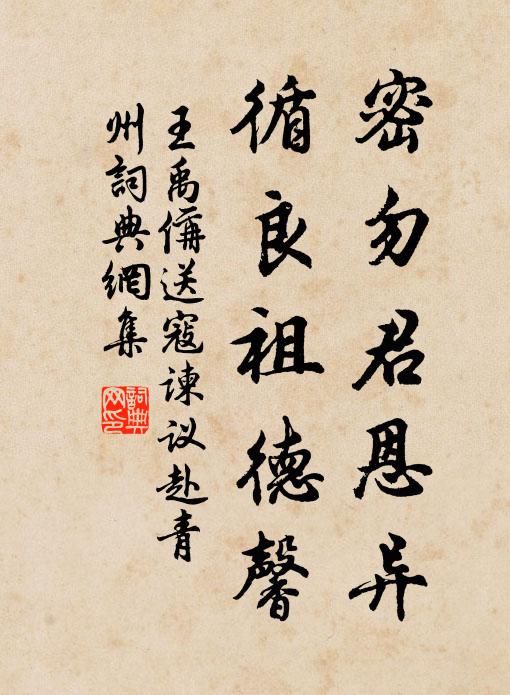 密勿君恩异
循良祖德馨
王禹偁送寇谏议赴青
州詞典網集
詞典
网印